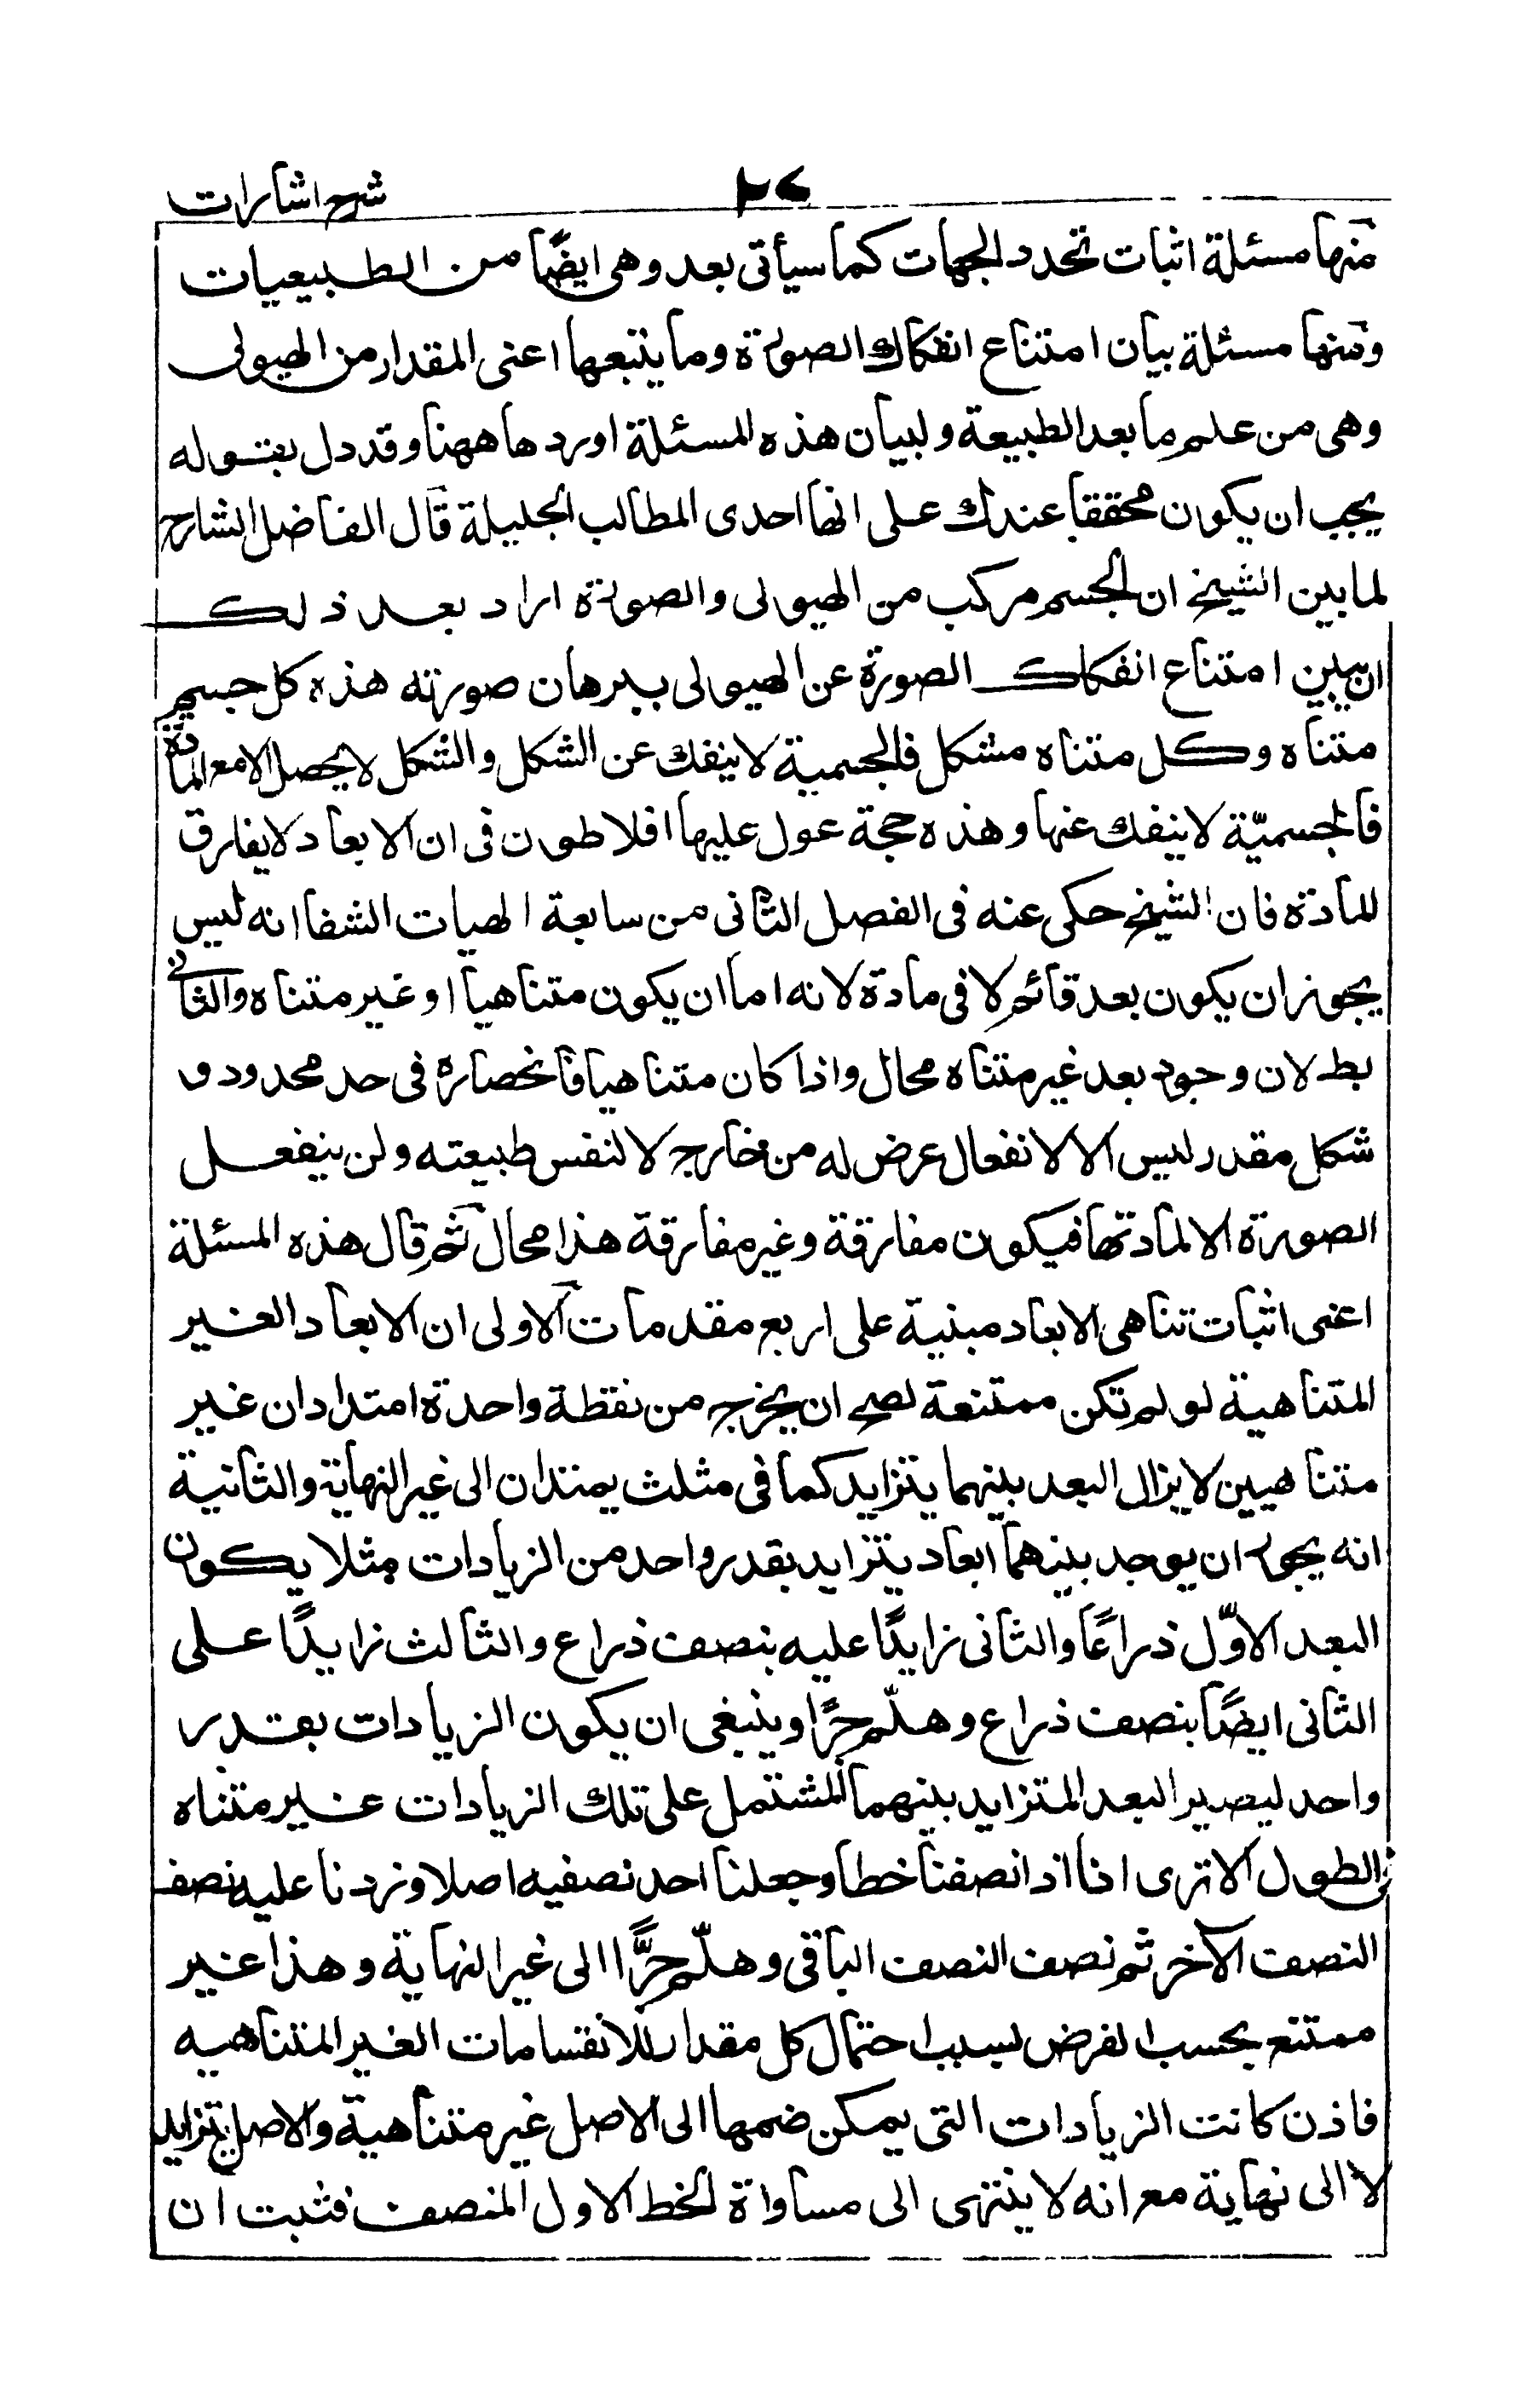 شرح اشارات
منها مسئلة اثبات تحدد الجهات كما سيأتى بعد وهى ايضًا من الطبيعيات
ومنها مسئلة بيان امتناع انفكاك الصورة وما يتبعها اعنى المقدار من الهيولى
وهى من علم ما بعد الطبيعة ولبيان هذه المسئلة اوردها ههنا وقد دل بقوله
يجب ان يكون محققا عندك على انها احدى المطالب الجليلة قال الفاضل الشارح
لما بين الشيخ ان الجسم مركب من الهيولى والصورة اراد بعد ذلك
ان يبين امتناع انفكاك الصورة عن الهيولى ببرهان صورته هذه كل جسم
متناه وكل متناه مشكل فالجسمية لا ينفك عن الشكل والشكل لا يحصل الا مع المادة
فالجسميّة لا ينفك عنها وهذه حجة عول عليها افلاطون فى ان الابعاد لا يفارق
المادة فان الشيخ حكى عنه فى الفصل الثانى من سابعة الهيات الشفا انه ليس
يجوز ان يكون بعد قائم لا فى مادة لانه اما ان يكون متناهيا او غير متناه والثانى
بط لان وجود بعد غير متناه محال واذا كان متناهيا فانحصاره فى حد محدود و
شكل مقدر ليس الا لانفعال عرض له من خارج لا لنفس طبيعته ولن ينفعل
الصورة الا لمادتها فيكون مفارقة وغير مفارقة هذا محال ثم قال هذه المسئلة
اعنى اثبات تناهى الابعاد مبنية على اربع مقدمات الاولى ان الابعاد الغير
المتناهية لو لم تكن ممتنعة لصح ان يخرج من نقطة واحدة امتدادان غير
متناهيين لا يزال البعد بينهما يتزايد كما فى مثلث يمتدان الى غير النهاية والثانية
انه يجوز ان يوجد بينهما ابعاد يتزايد بقدر واحد من الزيادات مثلا يكون
البعد الاوّل ذراعًا والثانى زايدًا عليه بنصف ذراع والثالث زايدًا على
الثانى ايضًا بنصف ذراع وهلّم جرًا وينبغى ان يكون الزيادات بقدر
واحد ليصير البعد المتزايد بينهما المشتمل على تلك الزيادات غير متناه
فى الطول الا ترى انا اذا نصفنا خطا وجعلنا احد نصفيه اصلا وزدنا عليه نصف
النصف الآخر ثم نصف النصف الباقى وهلّم جرًّا الى غير النهاية وهذا غير
ممتنع بحسب الفرض لسبب احتمال كل مقدار للانقسامات الغير المتناهيه
فاذن كانت الزيادات التى يمكن ضمها الى الاصل غير متناهية والاصل يتزايد
لا الى نهاية مع انه لا ينتهى الى مساواة الخط الاول المنصف فثبت ان